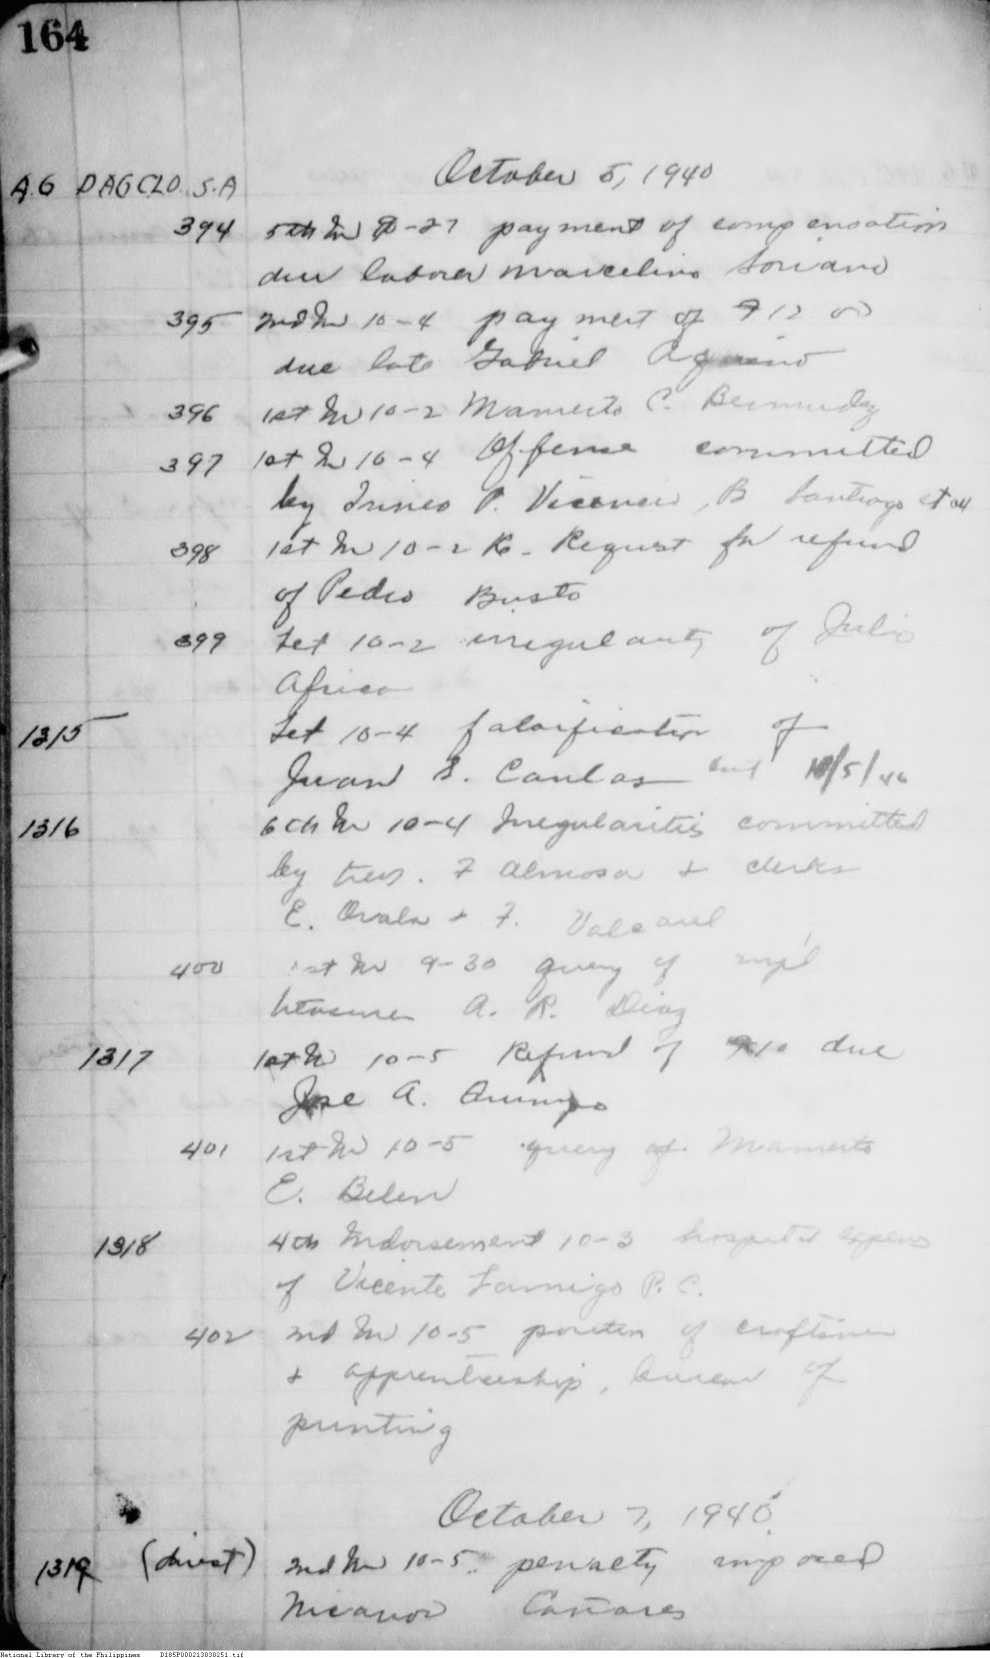 164
October 5, 1940
A.G DAGCLO S.A
394 5th In 9-27 payment of compensation
due laborer Marcelino Soriano
395 2nd In 10-4 payment of ₱12 00
due late Gabriel Aquino
396 1st In 10-2 Mamerto C. Bermudez
397 1st In 10-4 Offense committed
by P. B Santiago et al
398 1st In 10-2 Re- Request for refund
of Pedro Busto
399 Let 10-2 irregularity of Julio
Africa
1315 Let 10-4 falsification of
Juan S. Canlas 10/5/40
1316 6th In 10-4 Irregularities committed
by tres. F Almosa + clerks
E. Ovala + F.
400 1st In 9-30 query of mp'l
treasurer A. R. Diaz
1317 1st In 10-5 Refund of ₱10 due
Jose A.
401 1st In 10-5 query of Mamerto
E. Belen
1318 4th Indorsement 10-3 hospital expens
of Vicente P. C.
402 2nd In 10-5 of craftsmen
+ apprenticeship, bureau of
printing
October 7, 1940
1319 (direct) 2nd In 10-5 penalty imposed
Nicanor Cañares
National Library of the Philippines D185P000213030251.tif